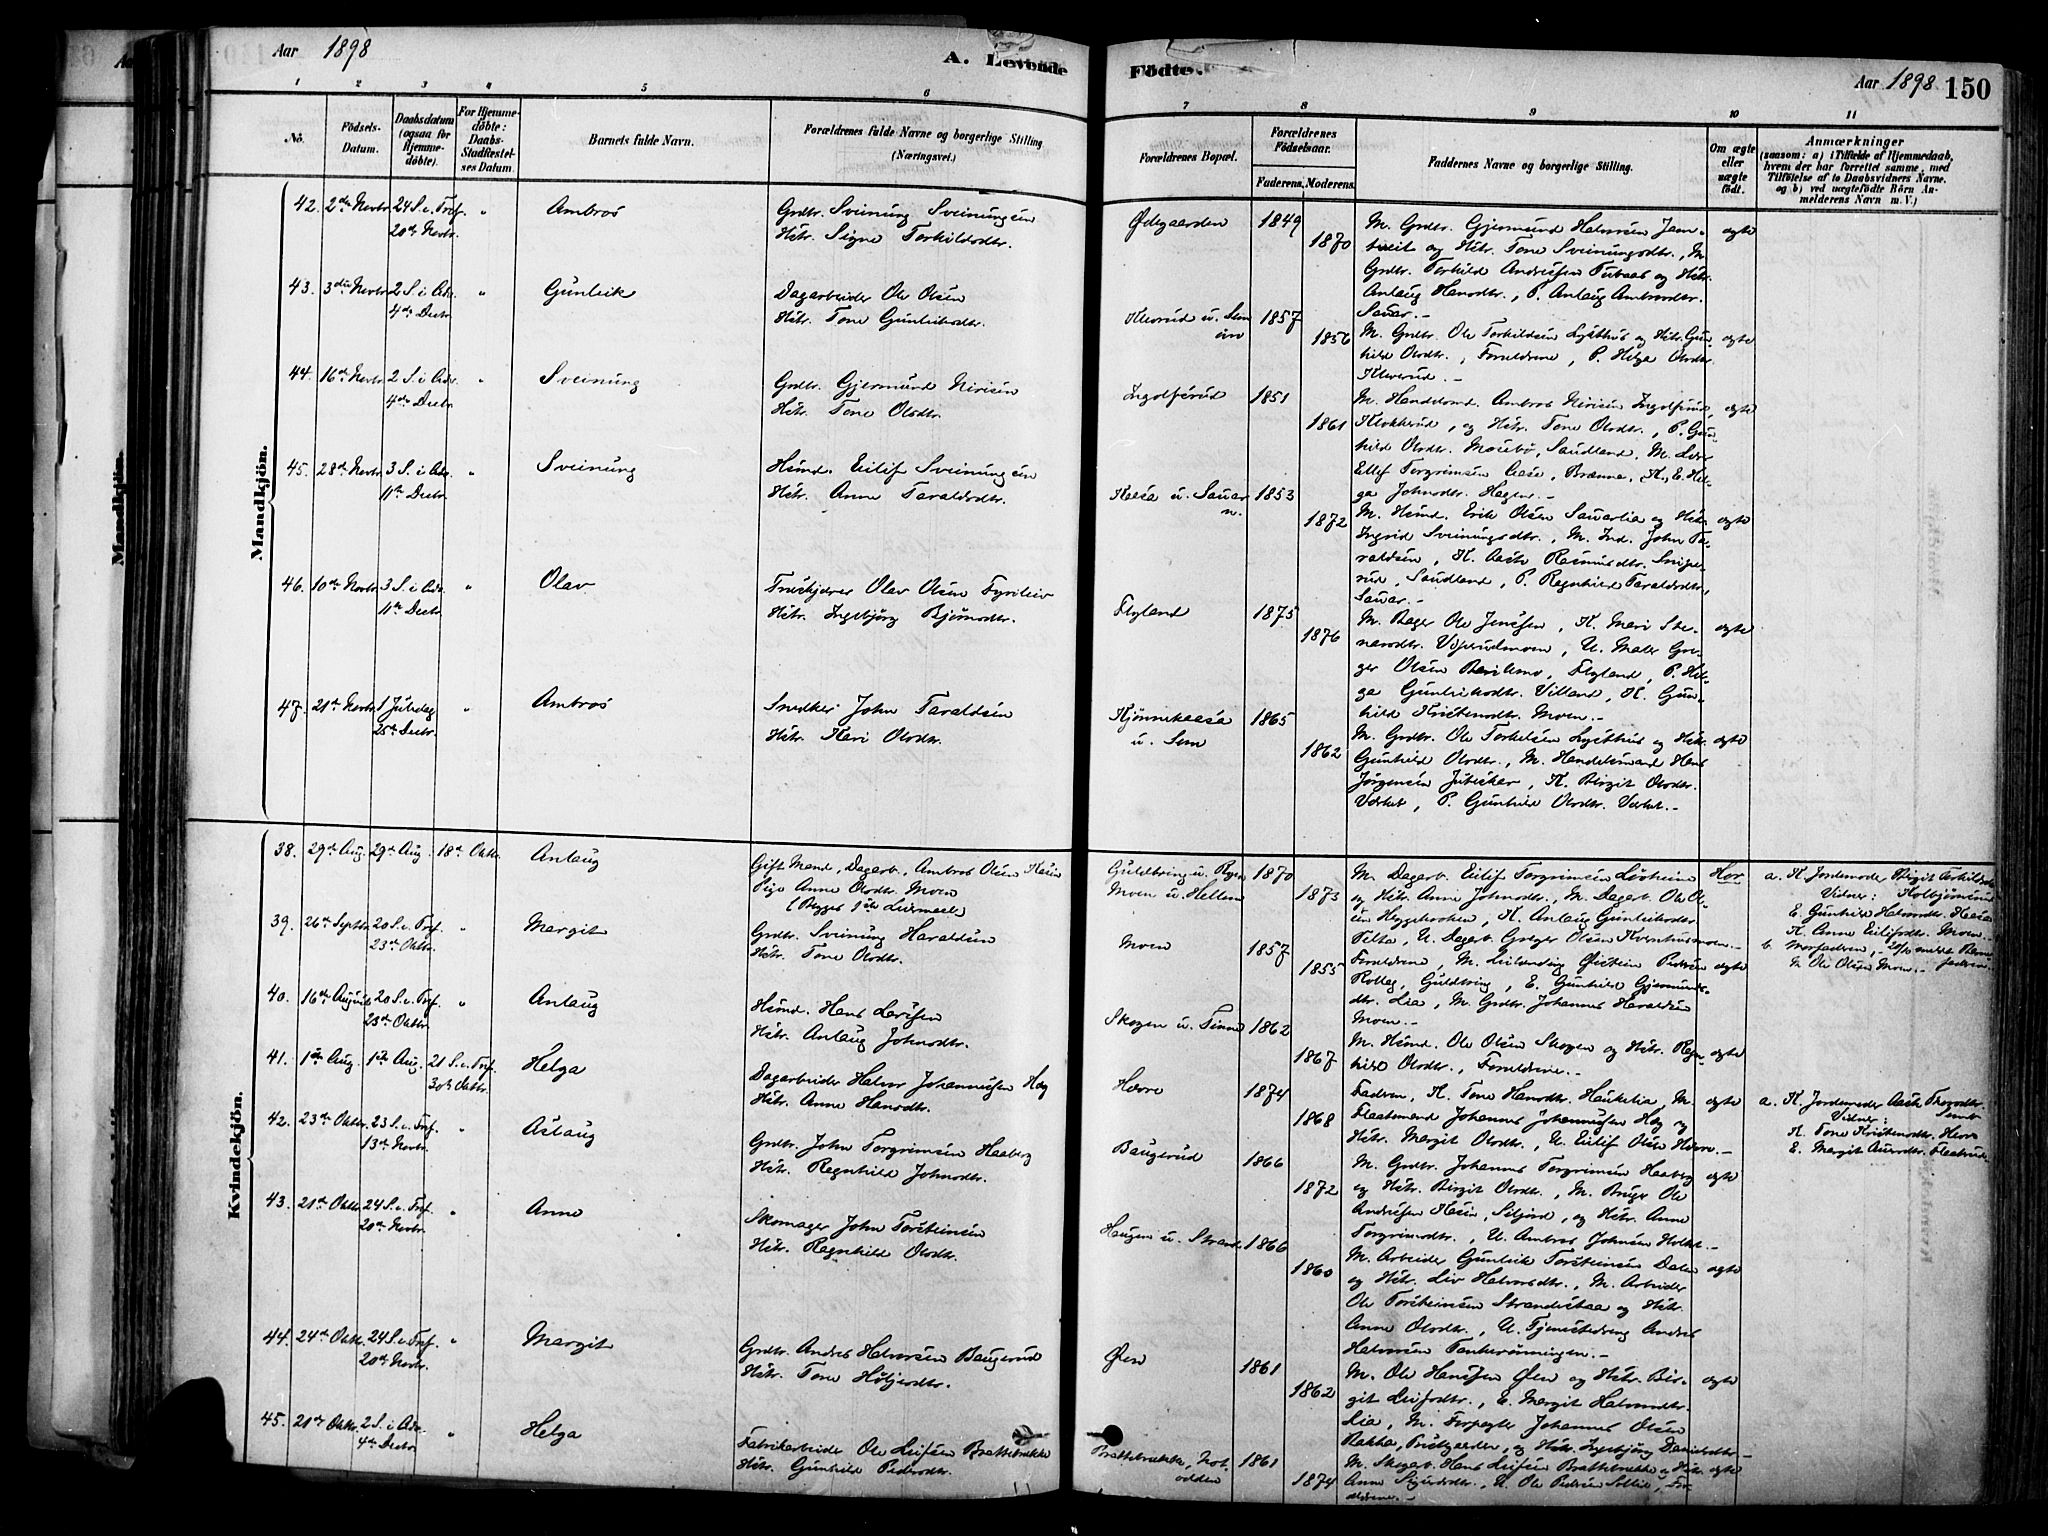 Aar 1898
A. Levende
Födte.
Aar 1898
150
1 2 3 4 5 6 7 8 9 10 11
No.
Födsels-
Datum.
Daabsdatum
(ogsaa for
Hjemme-
døbte).
For Hjemme-
døbte:
Daabs-
Stadfæstel-
ses Datum.
Barnets fulde Navn.
Forældrenes fulde Navne og borgerlige Stilling
(Næringsvei.)
Forældrenes Bopæl.
Forældrenes
Födselsaar.
Faderens. Moderens.
Faddernes Navne og borgerlige Stilling.
Om ægte
eller
uægte
født.
Anmærkninger
(saasom: a) i Tilfælde af Hjemmedaab,
hvem der har forrettet samme, med
Tilføielse af to Daabsvidners Navne.
og b) ved uægtefødte Børn An-
melderens Navn m. V.)
Mandkjön.
42. 2den Novbr. 24 S. e. Tref. " Ambros
20de Novbr.
Grdbr. Sveinung Sveinungsen
Hstr. Signe Torkildsdtr.
Ødegaarden 1849
1870
M. Grdbr. Gjermund Halvorsen
og Hstr. Tone Sveinungsdtr., M.
Grdbr. Torkild Andersen og Hstr.
Anlaug Hansdtr., P. Anlaug Ambrosdtr.
Sauar.
ægte
43. 3die Novbr. 2 S. i Adv. " Gunleik
4de Decbr.
Dagarbeider Ole Olsen
Hstr. Tone Gunleiksdtr.
Kleverud u. Sem 1857
1856
M. Grdbr. Ole Torkildsen Lysthus og Hstr. Gun-
hild Olsdtr., Forældrene, P. Helga Olsdtr.
Kleverud.
ægte
44. 16de Novbr. 2 S. i Adv. " Sveinung
4de Decbr.
Grdbr. Gjermund Nirisen
Hstr. Tone Olsdtr.
Ingolfsrud 1851
1861
M. Handelsmd. Ambros Nirisen Ingolfsrud,
Klokkerud, og Hstr. Tone Olsdtr., P. Gun-
hild Olsdtr. Moabø, Saudland, M.
Ellef Torgrimsen Aase, Brænne, K. E. Hel-
ga Johnsdtr. Hagen.
ægte
45. 28de Novbr. 3 S. i Adv. " Sveinung
11te Decbr.
Husmd. Eilif Sveinungsen
Hstr. Anne Taraldsdtr.
Kaasa u. Sauar 1853
n.
1872
M. Husmd. Erik Olsen Sauarlia og Hstr.
Ingrid Sveinungsdtr., M. Ind. John Ta-
raldsen, K. Aase Rasmusdtr.
Saudland, P. Regnhild Taraldsdtr.
Sauar.
ægte
46. 10de Novbr. 3 S. i Adv. " Olav
11te Decbr.
Olav Olsen Fyrileiv
Hstr. Ingebjørg Bjørnsdtr.
Flyland 1875
1876
M. Bager Ole Jensen, K. Mari Ste-
narsdtr. Vipeudmoen, U. Maler Gre-
ger Olsen, Flyland, P. Hel-
ga Gunleiksdtr. Villand, K. Gun-
hild Kristensdtr. Moen.
ægte
47. 21de Novbr. 1 Juledag " Ambros
25de Decbr.
Snedker John Taraldsen
Hstr. Kari Olsdtr.
Kjønnekaasa 1865
u. Sem
1862
M. Grdbr. Ole Torkelsen Lysthus og Hstr.
Gunhild Olsdtr., M. Handelsmand Hans
Jørgensen, K. Birgit Olsdtr.
Verket, P. Gunhild Olsdtr. Verket.
ægte
Kvindekjön.
38. 29de Aug. 29de Aug. 18de Oktbr. Anlaug
Gift Mand, Dagarb. Ambros Olsen Kasin
Pige Anne Olsdtr. Moen
(Begges 1ste Leiermaal)
Guldbring u. 1870
Moen u. Hellem
1873
M. Dagarb. Eilif Torgrimsen Løvheim
og Hstr. Anne Johnsdtr., M. Dagarb. Ole Ol-
sen Heggebroken, K. Anlaug Gunleiksdtr.
Telta, U. Dagarb. Greger Olsen Kvernhusmoen.
Hor
a. K. Jordemoder Birgit Torkildsdtr.
Vidner:
E. Gunhild Halvorsdtr. Kaasa
K. Anne Eilifsdtr. Moen.
b. Morfaderen,
M. Ole Olsen Moen.
39. 26de Septbr. 20 S. e. Tref. " Margit
23de Oktbr.
Grdbr. Sveinung Haraldsen
Hstr. Tone Olsdtr.
Moen 1857
1855
Forældrene, M. Leilænding Øistein Pedersen
Rollag, Guldbring, E. Gunhild Gjermunds-
dtr. Lia, M. Grdbr. Johannes Haraldsen
Moen.
ægte
40. 16de August 20 S. e. Tref. " Anlaug
23de Oktbr.
Husmd. Hans Larsen
Hstr. Anlaug Johnsdtr.
Skogen u. Tinne 1862
1867
M. Husmd. Ole Olsen Skogen og Hstr. Regn-
hild Olsdtr., Forældrene.
ægte
41. 1ste Aug. 1ste Aug. 21 S. e. Tref. Helga
30de Oktbr.
Dagarbeider Halvor Johannesen Hag
Hstr. Anne Hansdtr.
Hovre 1874
1868
Faderen, K. Tone Hansdtr. Haukelia, M.
Flaatemand Johannes Johannesen Hag og
Hstr. Margit Olsdtr., U. Eilif Olsen Hovre.
ægte
a. K. Jordemoder Aase
Vidner:
K. Tone Kristensdtr. Hovre
E. Margit
42. 23de Oktbr. 23 S. e. Tref. " Aslaug
13de Novbr.
Grdbr. John Torgrimsen Haaberg
Hstr. Regnhild Johnsdtr.
Baugerud 1866
1872
M. Grdbr. Johannes Torgrimsen Haaberg
og Hstr. Birgit Olsdtr., M. Ole
Andersen Kasin, Seljord, og Hstr. Anne
Torgrimsdtr., U. Ambros Johnsen Holtet.
ægte
43. 21de Oktbr. 24 S. e. Tref. " Anne
20de Novbr.
Skomager John Torsteinsen
Hstr. Regnhild Olsdtr.
Haugen u. Strand 1866
1860
M. Arbeider Gunleik Torsteinsen Dalen
og Hstr. Liv Halvorsdtr., M. Arbeider
Ole Torsteinsen Strandestaa og Hstr.
Anne Olsdtr., U. Tjenestedreng Andres
Halvorsen Tankerønningen.
ægte
44. 24de Oktbr. 24 S. e. Tref. " Margit
20de Novbr.
Grdbr. Andres Halvorsen Baugerud
Hstr. Tone Høljesdtr.
Øen 1861
1862
M. Ole Hansen Øen og Hstr. Bir-
git Leifsdtr., E. Margit Halvorsdtr.
Lia, M. Forpagter Johannes Olsen
Bakka, Prestgarden, og Hstr. Ingebjørg Danielsdtr.
ægte
45. 21de Oktbr. 2 S. i Adv. " Helga
4de Decbr.
Fabrikarbeider Ole Leifsen Brattebrække
Hstr. Gunhild Pedersdtr.
Brattebrække, Not- 1861
odden
1874
M. Skogarb. Hans Leifsen Brattebrække og Hstr.
Anne Sigurdsdtr., U. Ole Pedersen Sollie, For-
ældrene.
ægte